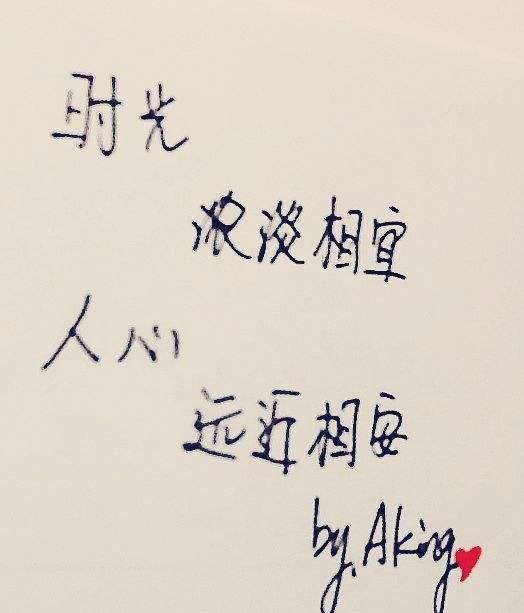 时光
浓淡相宜
人心
远近相安
by.Aking